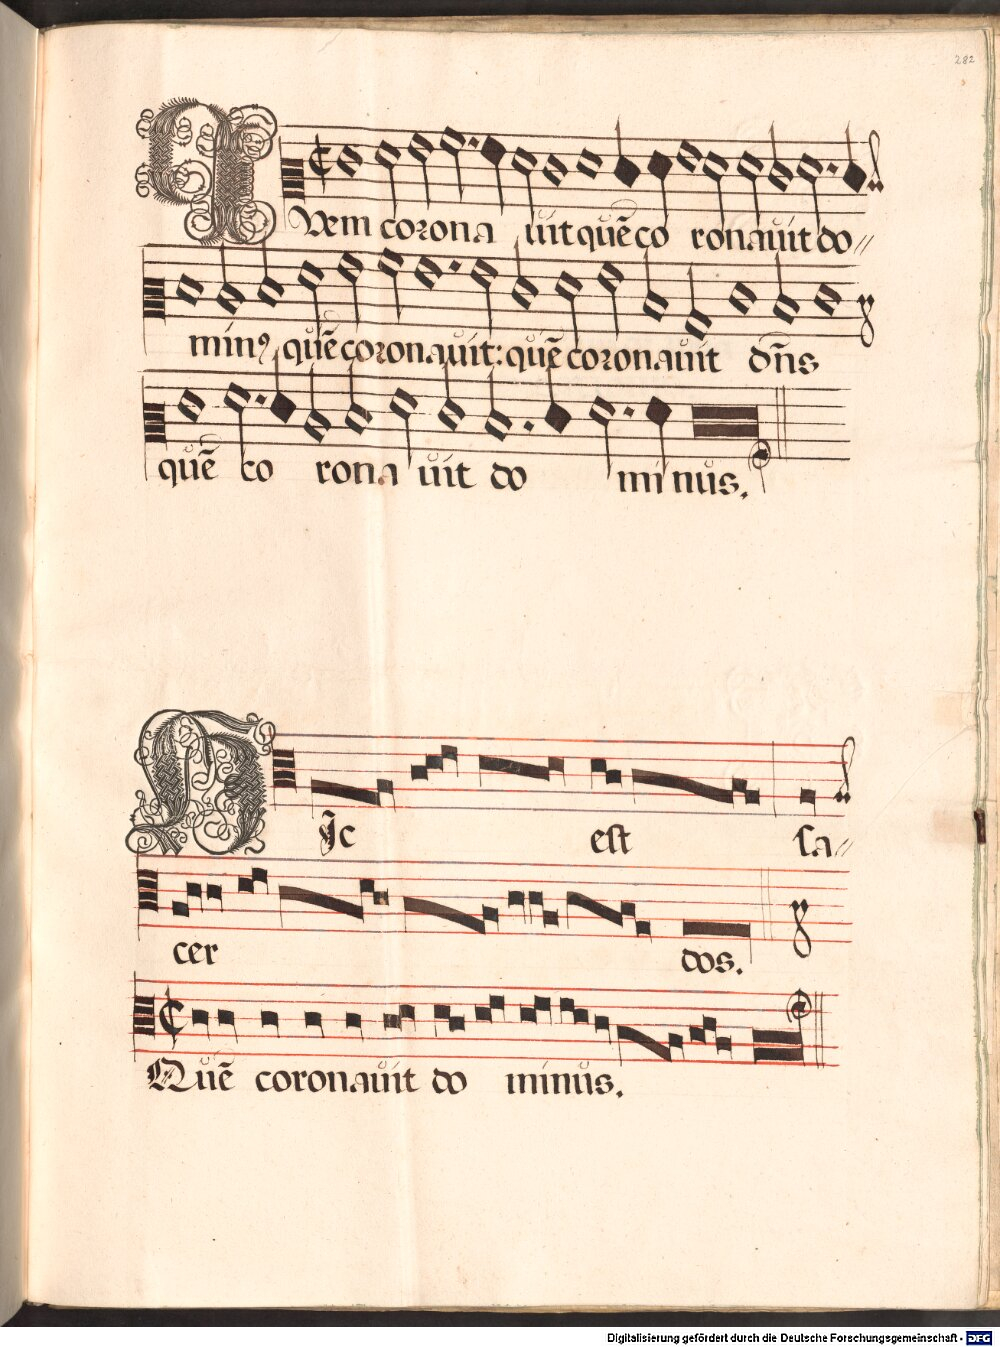 282
Quem corona uit quē co ronauit do//
minꝰ quē coronauit: quē coronauit dn̄s
quē co rona uit do minus.
Hic est sa//
cer dos.
Quē coronauit do minus.
Digitalisierung gefördert durch die Deutsche Forschungsgemeinschaft - DFG